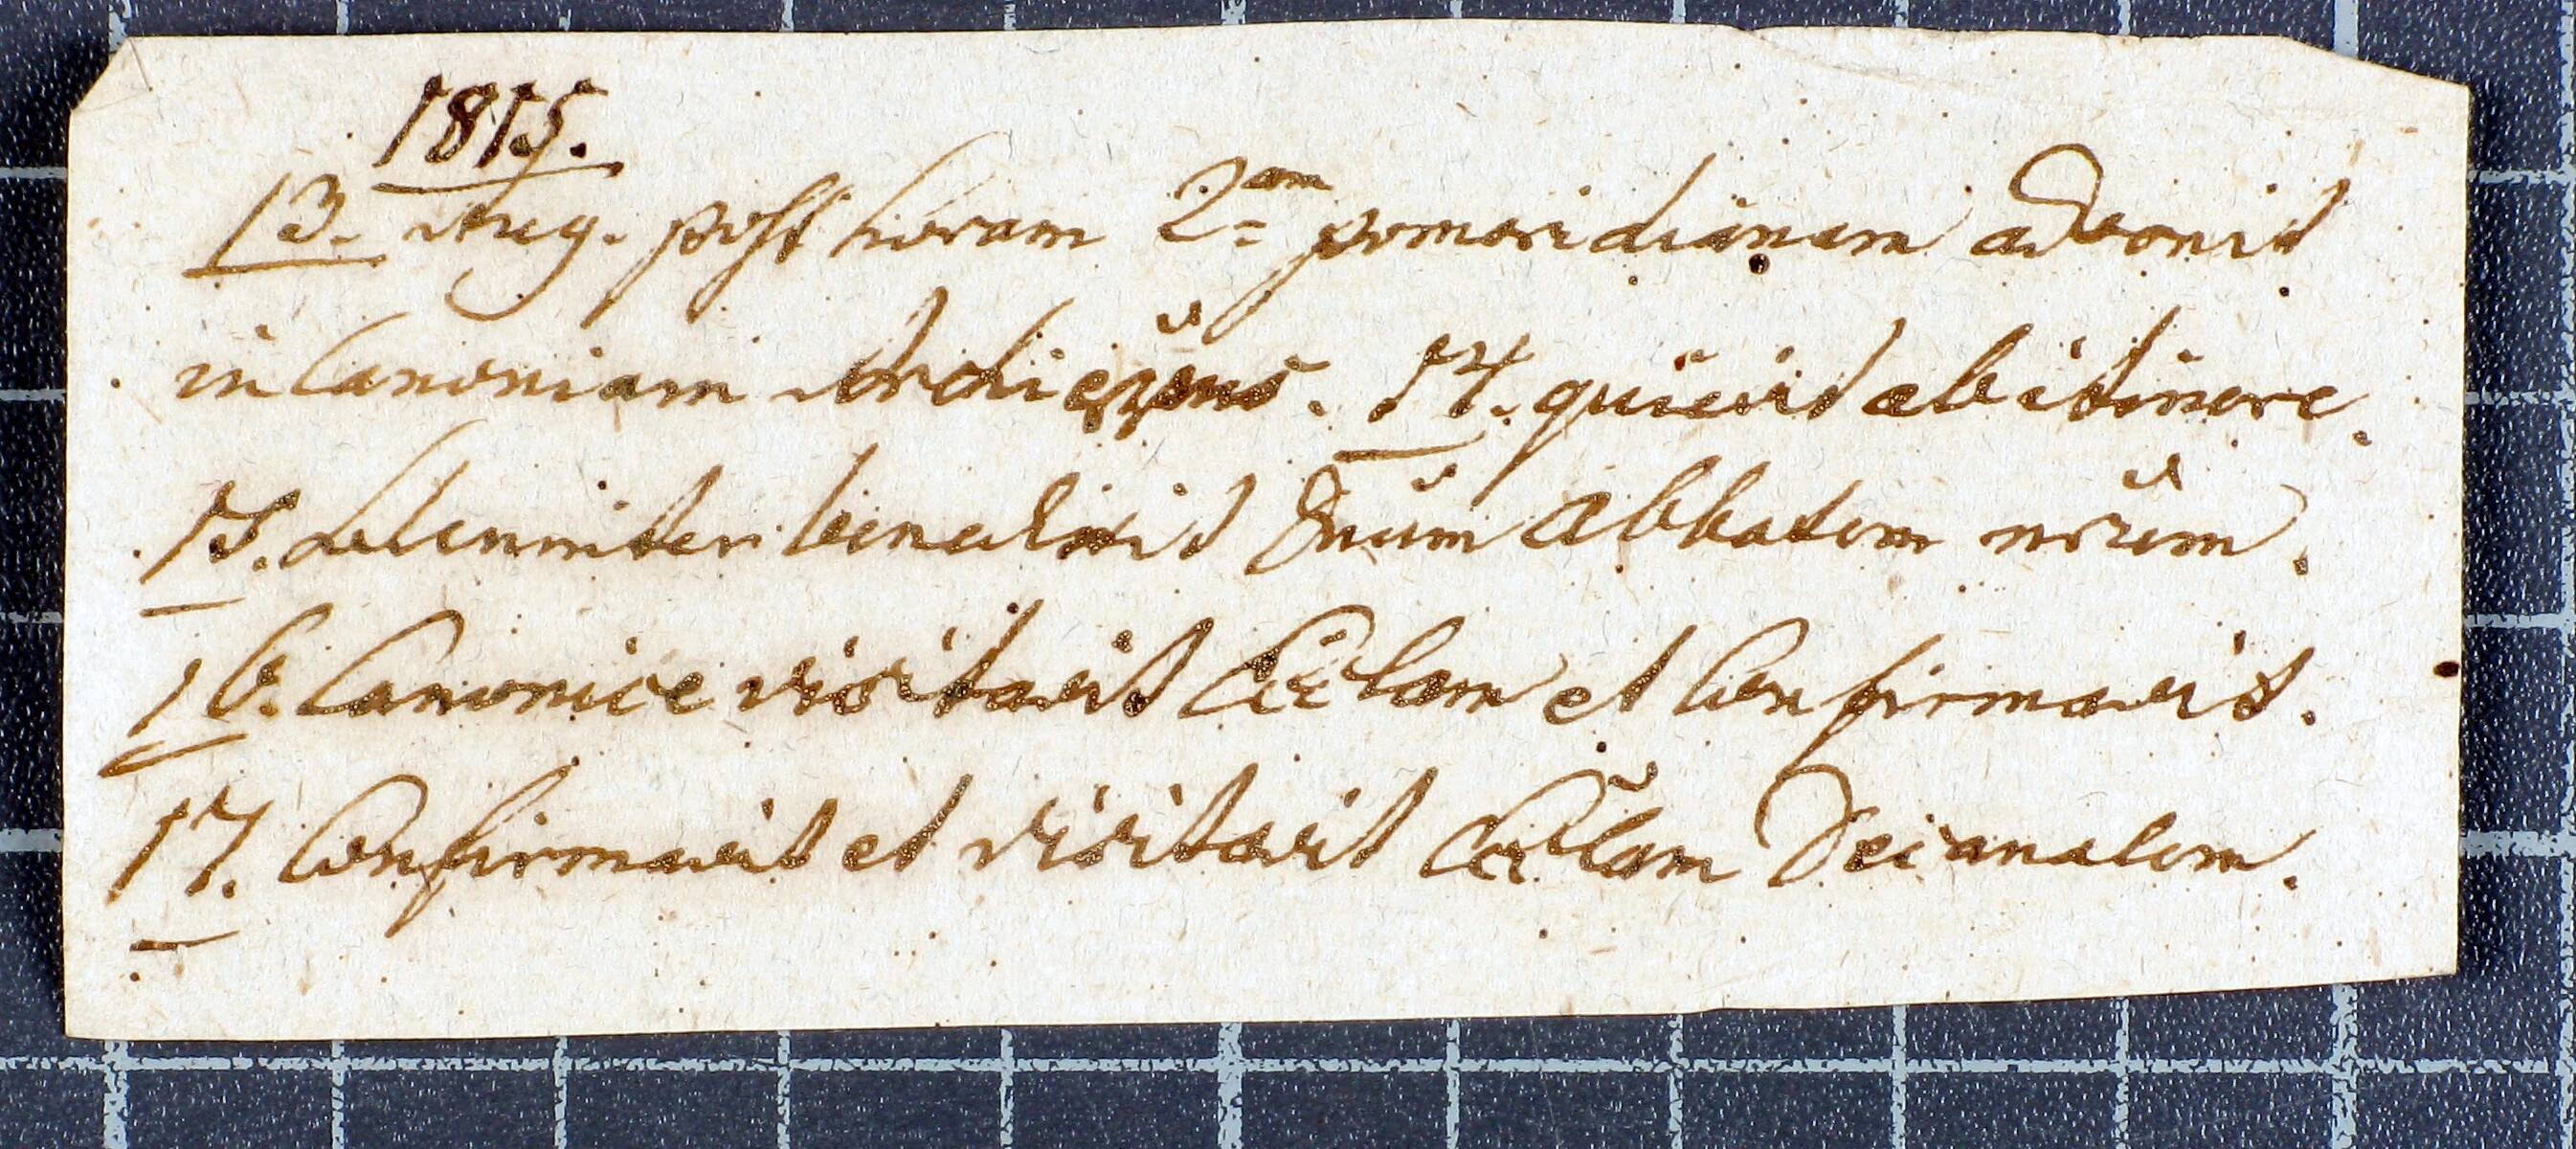 1815.
13. Aug. post horam 2am pomeridianam advenit
in Canoniam Archieppus. 14. quievit ab itinere.
15. solenniter benedixit Dnum Abbatem nrum.
16. Canonice visitavit Eccłam et Confirmavit.
17. Confirmavit et visitavit Eccłam Decanalem.